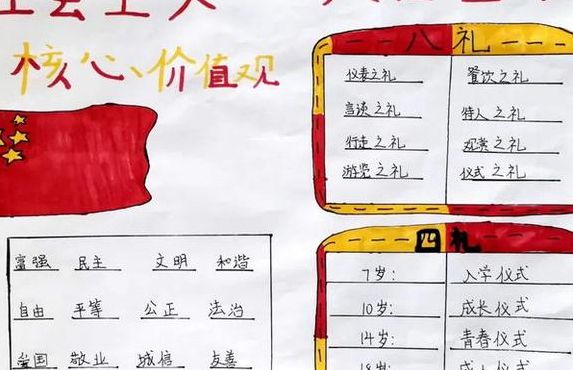 核心价值观
富强 民主 文明 和谐
自由 平等 公正 法治
爱国 敬业 诚信 友善
八礼
仪表之礼 餐饮之礼
言谈之礼 待人之礼
行走之礼 观赏之礼
游览之礼 仪式之礼
四礼
7岁: 入学仪式
10岁: 成长仪式
14岁: 青春仪式
18岁: 成人仪式